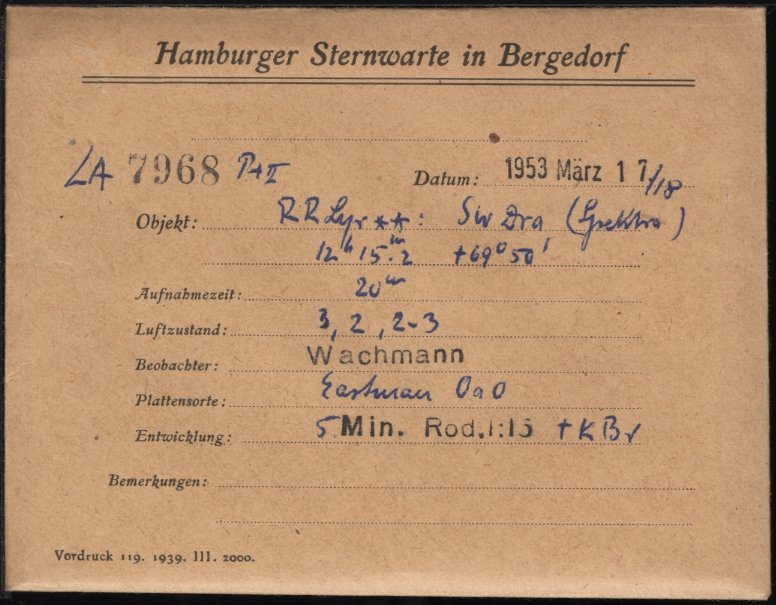 Hamburger Sternwarte in Bergedorf
LA 7968 P+II Datum: 1953 März 17/18
Objekt: RR Lyr **: SW Dra (Spektro)
12h 15.m2 +69° 50'
Aufnahmezeit: 20m
Luftzustand: 3, 2, 2-3
Beobachter: Wachmann
Plattensorte: Eastman OaO
Entwicklung: 5 Min. Rod. 1:15 + KBr
Bemerkungen:
Vordruck 119. 1939. III. 2000.